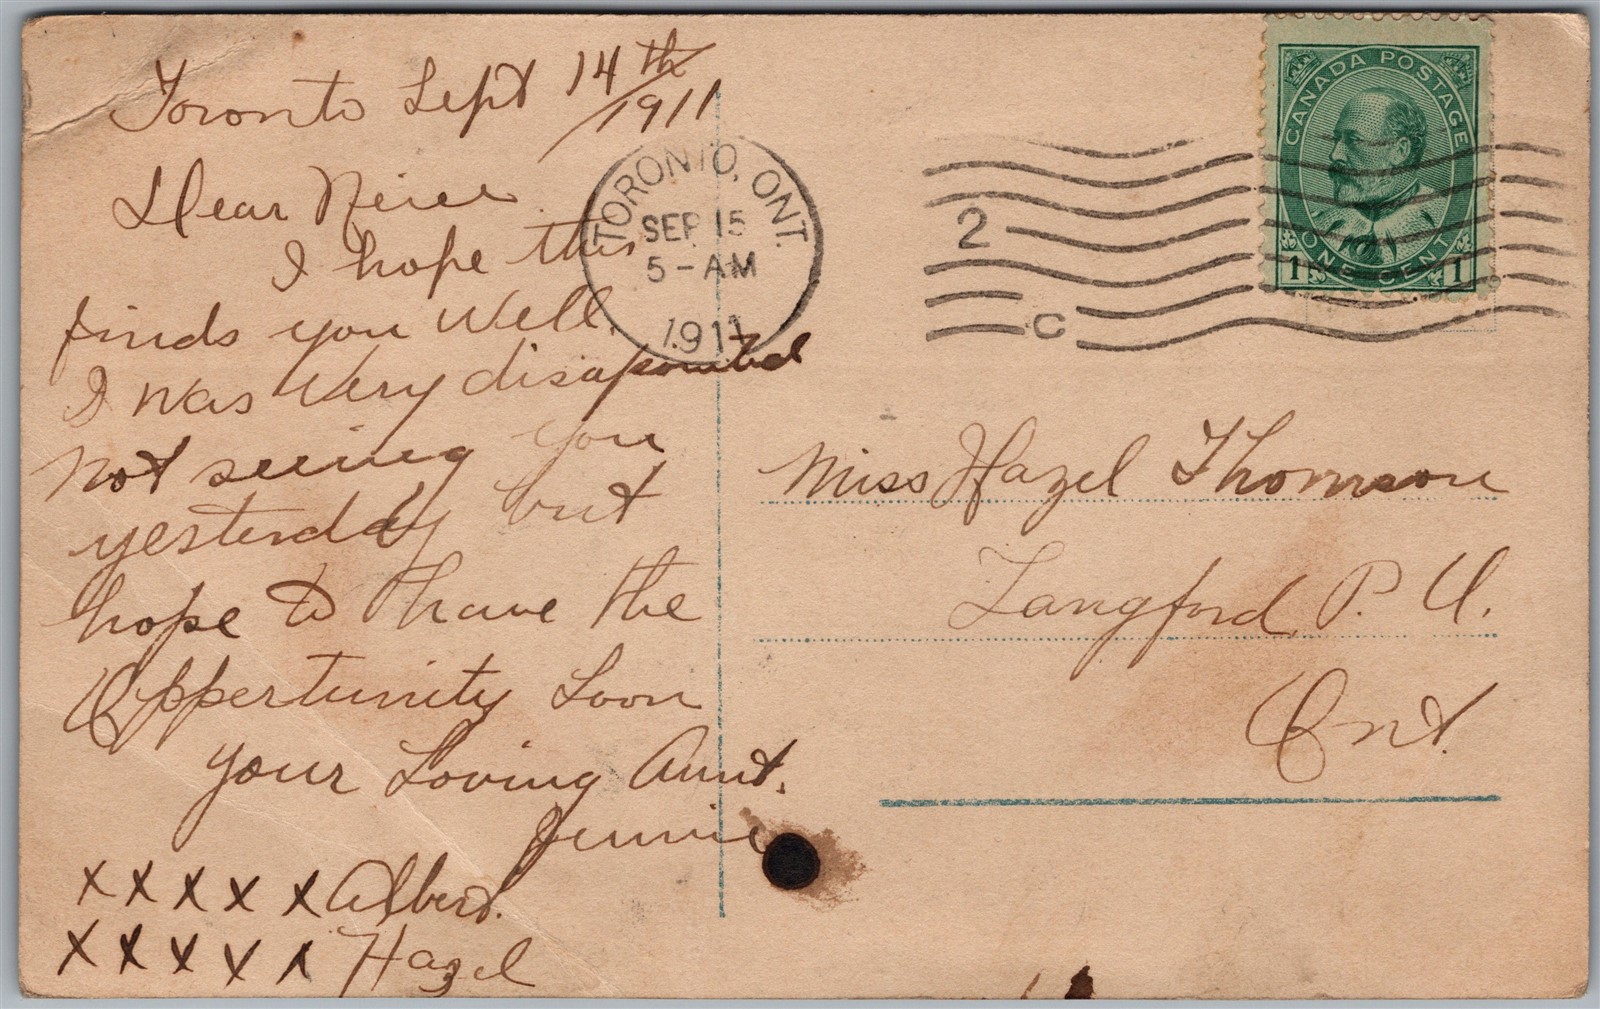 Toronto Sept 14th/1911
Dear Neice
I hope this
finds you well.
I was very disapointed
not seeing you
yesterday but
hope to have the
Oppertunity Soon
your Loving Aunt.
Jennie
x x x x x Albert.
x x x x x Hazel
TORONTO, ONT.
SEP 15
5-AM
1911
2
C
CANADA POSTAGE
ONE CENT
1 1
Miss Hazel Thomson
Langford P. O.
Ont.